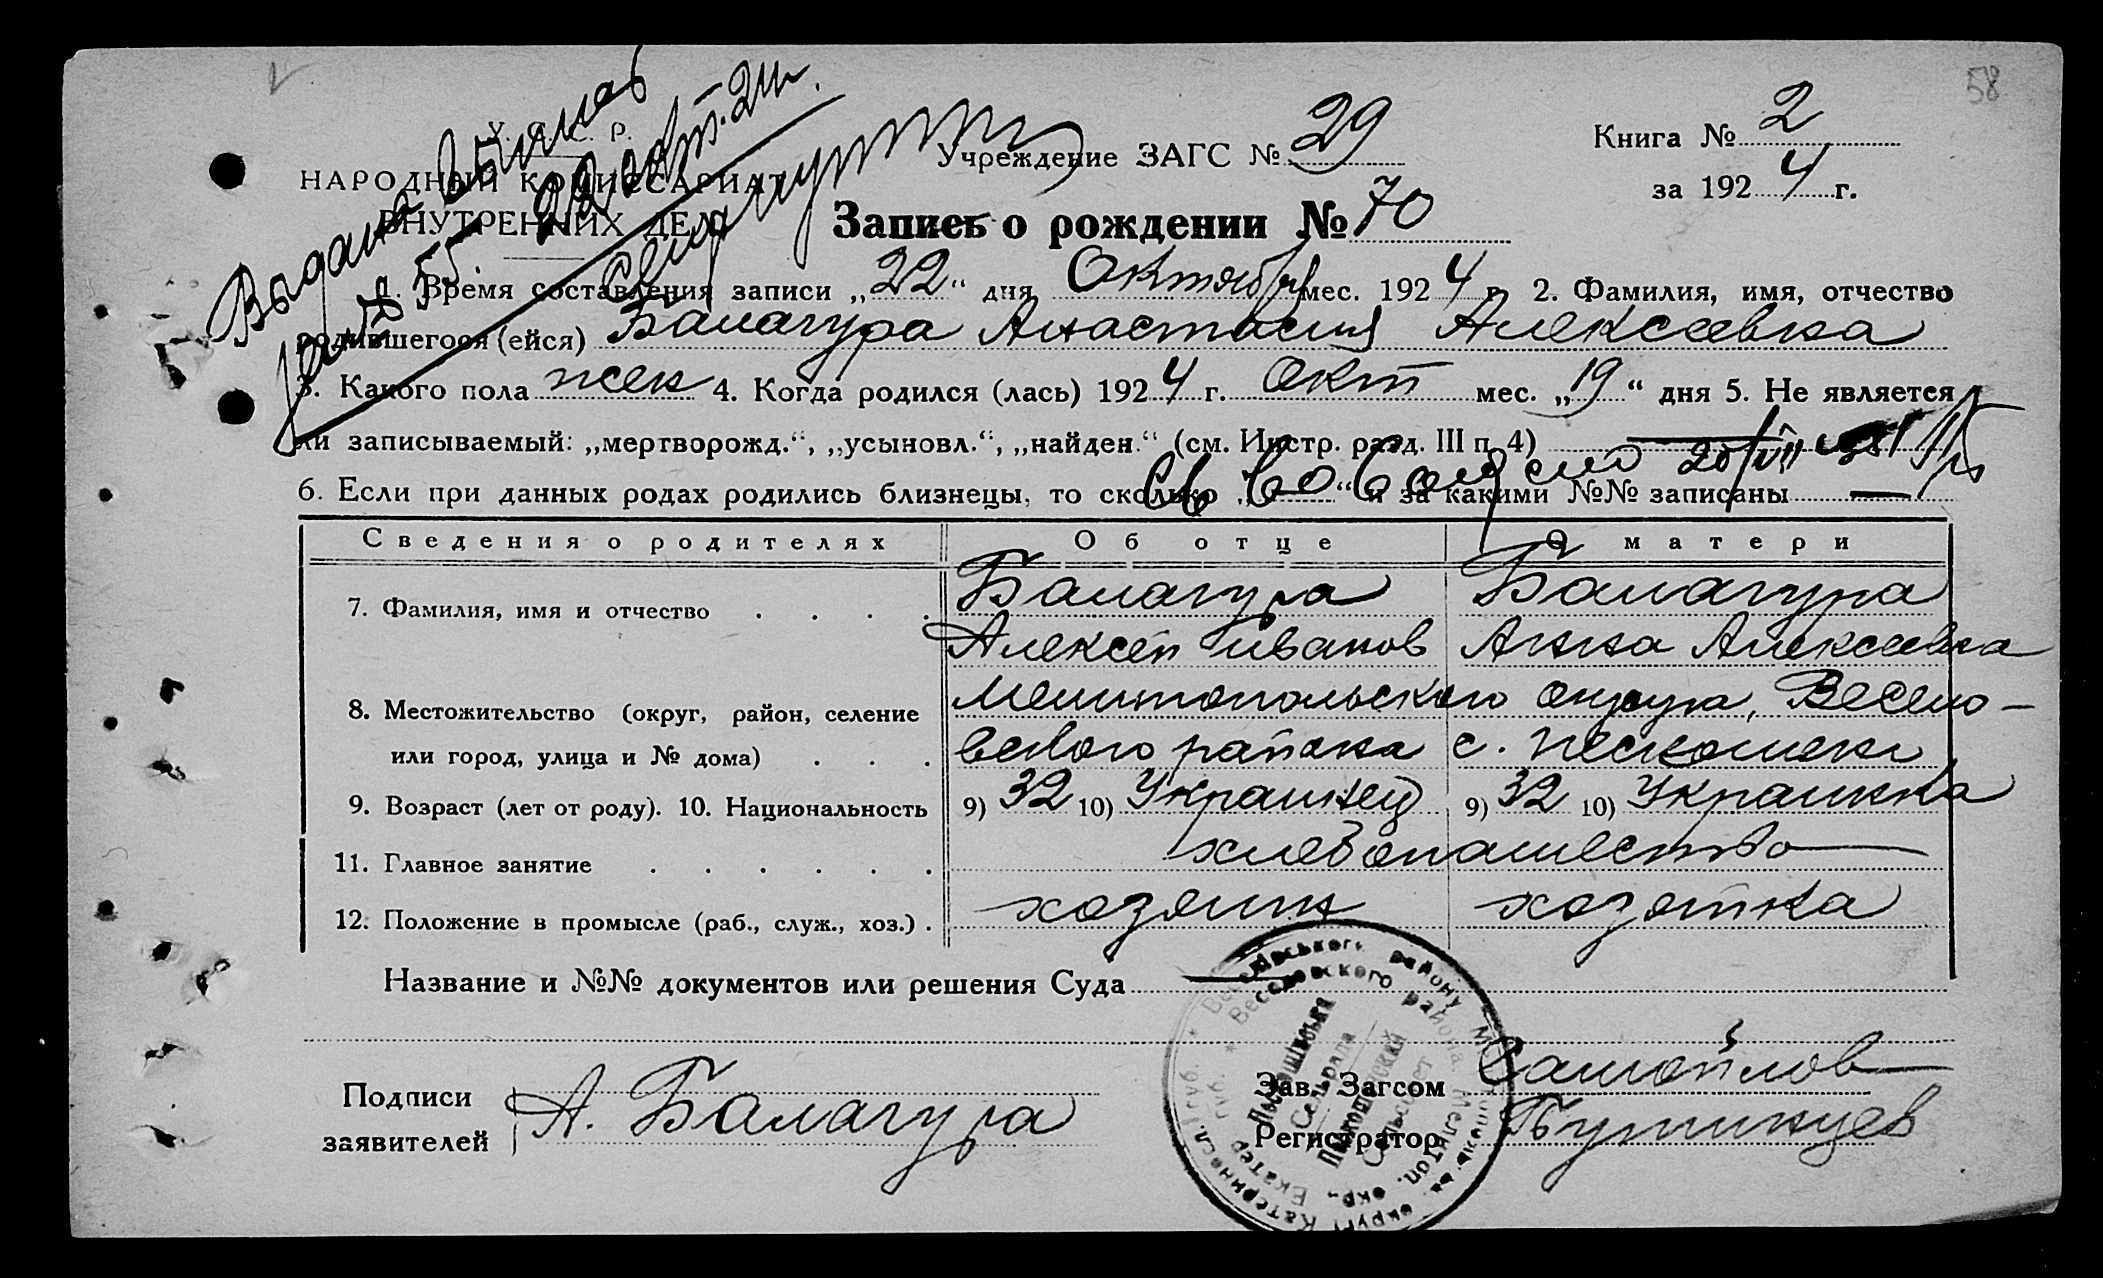 58
У. С. С. Р.
НАРОДНЫЙ КОМИССАРИАТ
ВНУТРЕННИХ ДЕЛ
Учреждение ЗАГС № 29
Книга № 2
за 1924 г.
Запись о рождении № 70
1. Время составления записи „22“ дня Октября мес. 1924 г. 2. Фамилия, имя, отчество
родившегося (ейся) Балагура Анастасия Алексеевна
3. Какого пола жен 4. Когда родился (лась) 1924 г. окт мес. „19“ дня 5. Не является
ли записываемый: „мертворожд.“, „усыновл.“, „найден.“ (см. Инстр. разд. III п. 4) —
6. Если при данных родах родились близнецы, то сколько „—“ и за какими №№ записаны —
Сведения о родителях Об отце О матери
7. Фамилия, имя и отчество . . . . Балагура Балагура
Алексей Иванов Анна Алексеевна
8. Местожительство (округ, район, селение Мелитопольского округа, Весело-
или город, улица и № дома) . . . вского района с. Пескошено
9. Возраст (лет от роду). 10. Национальность 9) 32 10) Украинец 9) 32 10) Украинка
11. Главное занятие . . . . . . хлебопашество
12. Положение в промысле (раб., служ., хоз.) . хозяин хозяйка
Название и №№ документов или решения Суда —
Подписи
заявителей А. Балагура
Зав. Загсом Самойлов
Регистратор